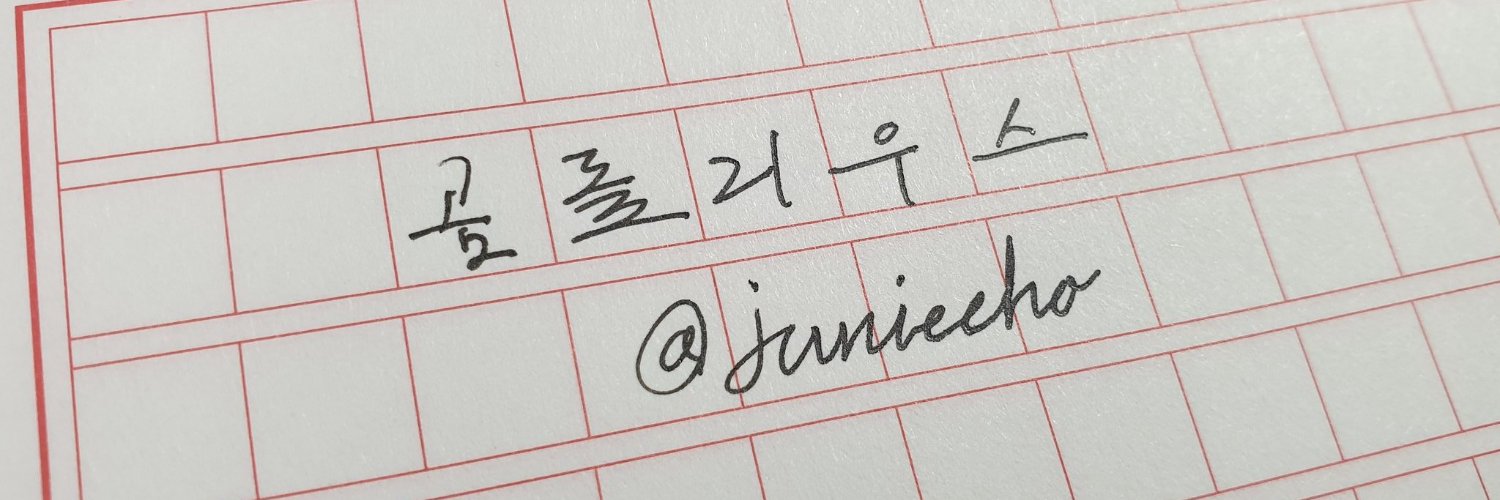 곰를리우스
@juniecho